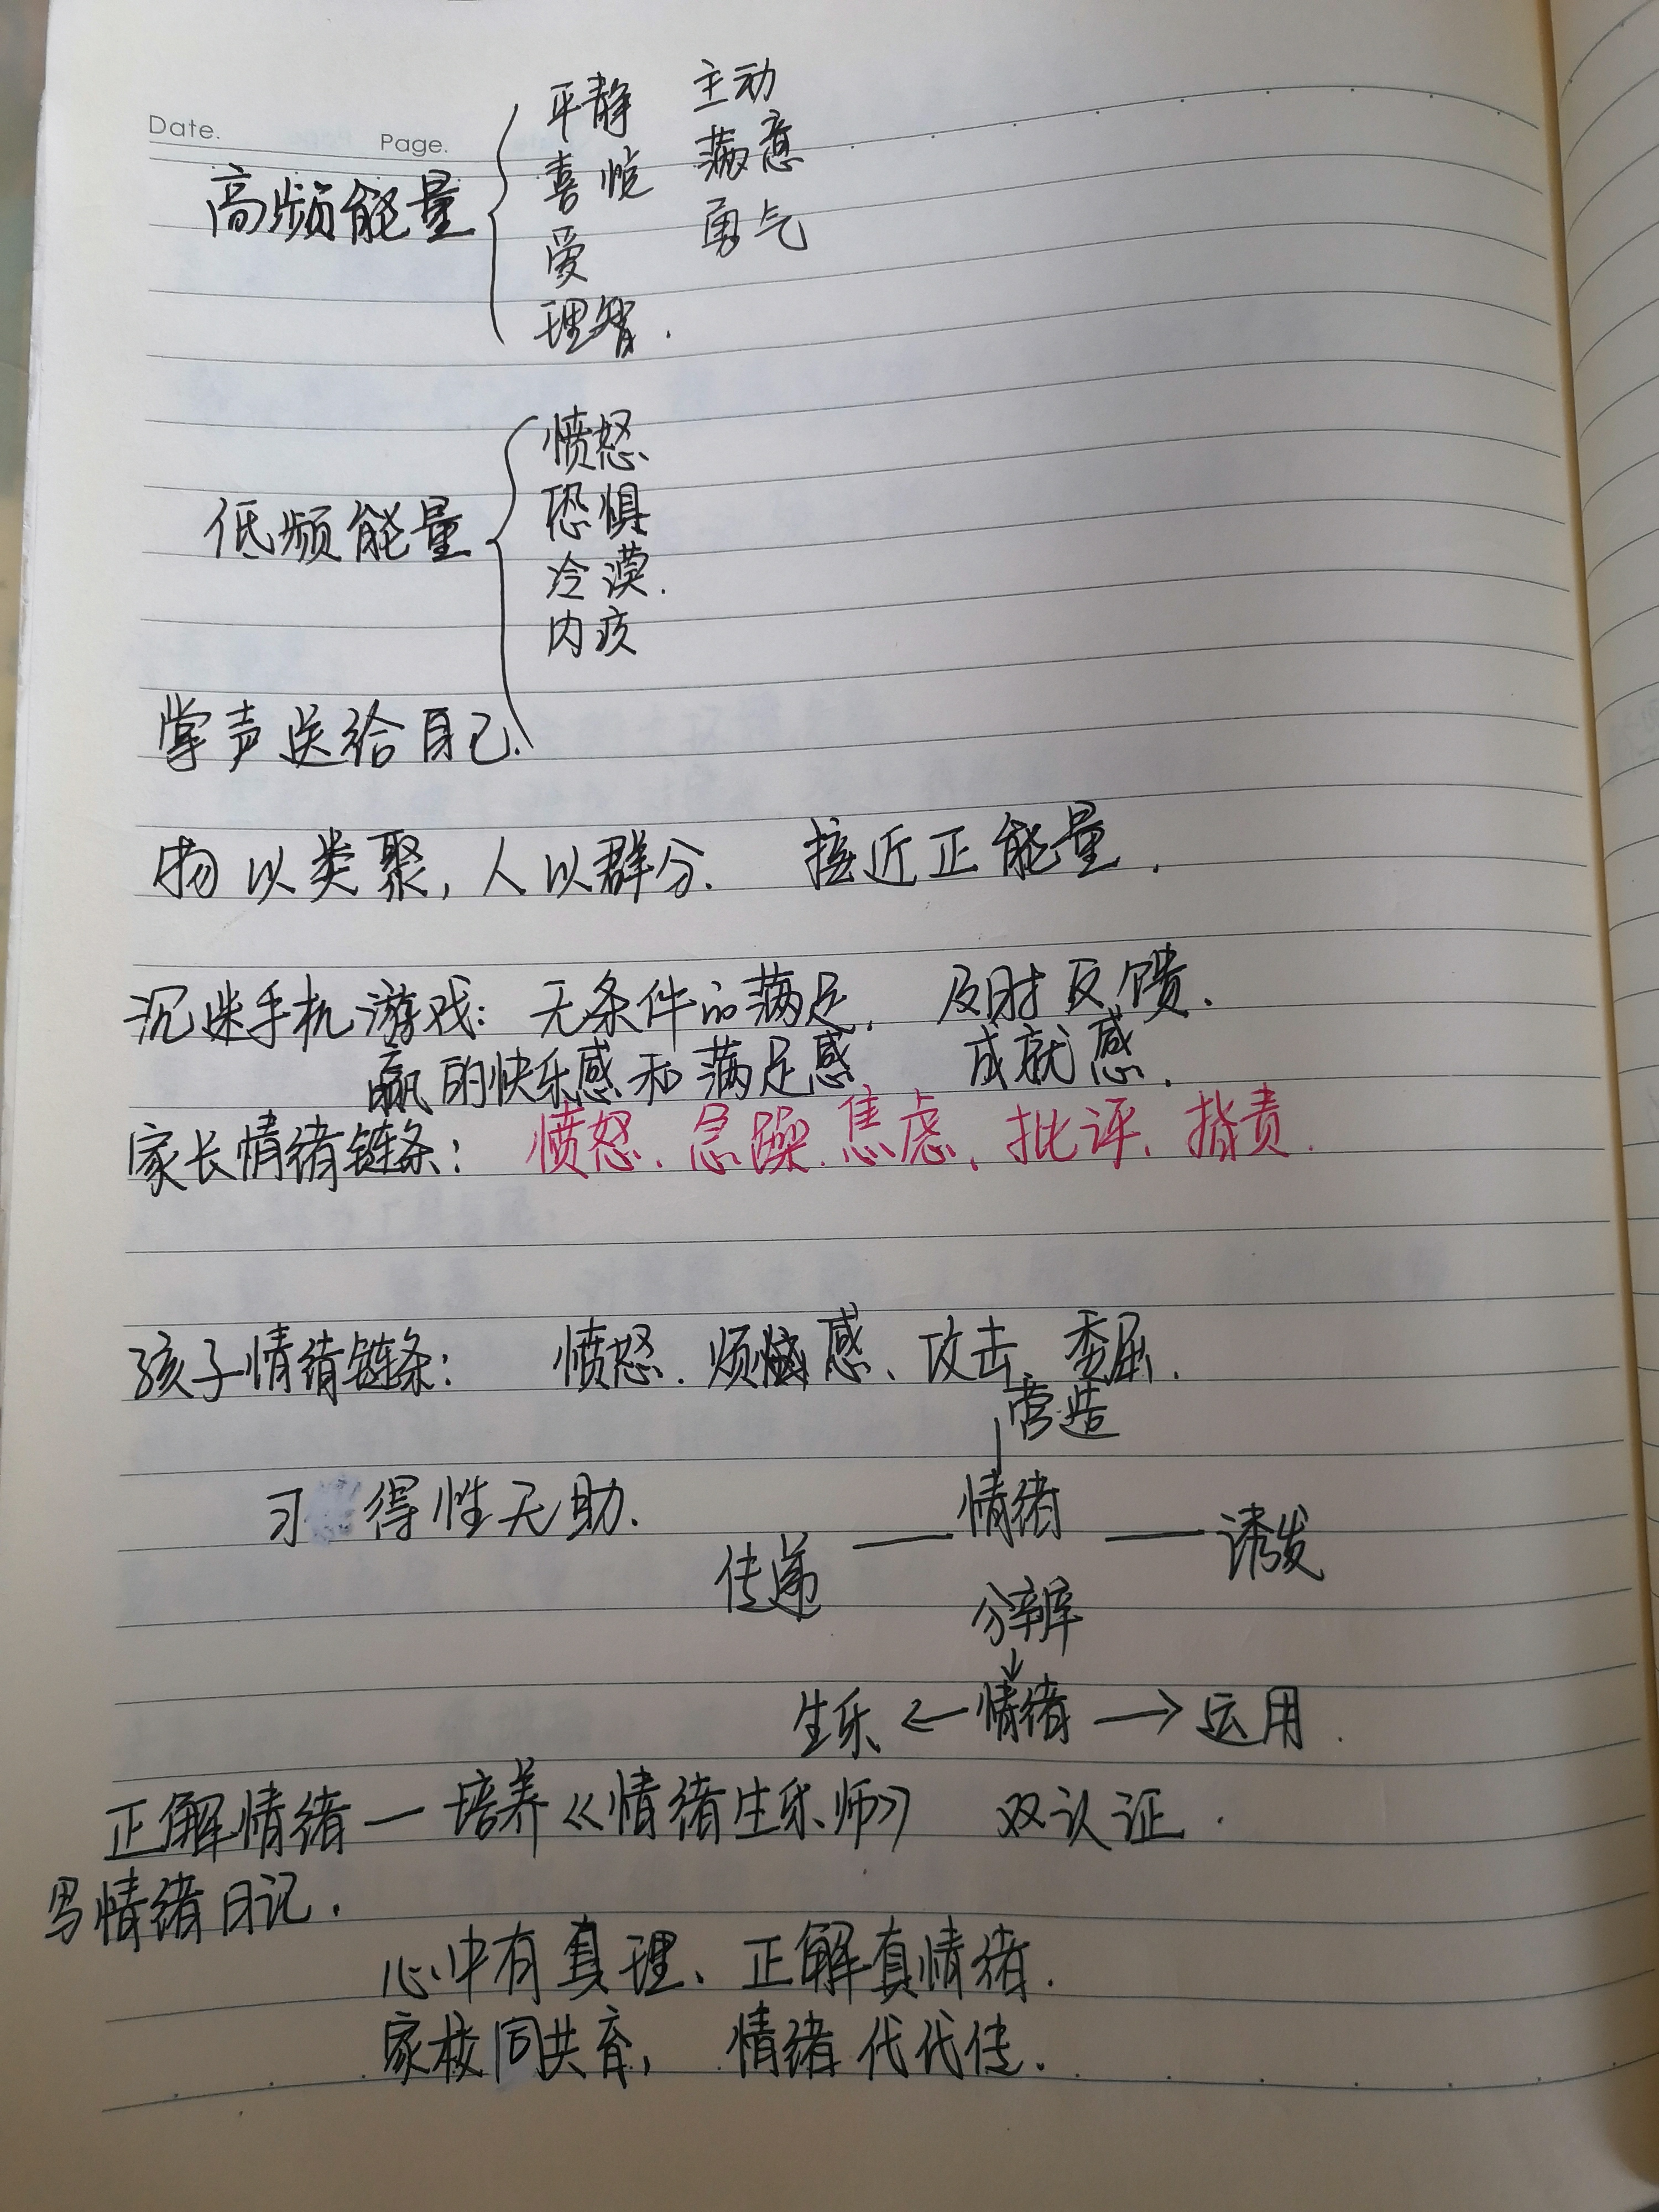 Date.
Page.
平静 主动
喜悦 满意
高频能量
爱 勇气
理智.
愤怒
恐惧
低频能量
冷漠.
内疚
掌声送给自己.
物以类聚,人以群分. 接近正能量.
沉迷手机游戏: 无条件的满足, 及时反馈.
赢的快乐感和满足感 成就感.
家长情绪链条: 愤怒.急躁.焦虑、批评、指责.
孩子情绪链条: 愤怒.烦恼感、攻击、委屈.
营造
习得性无助.
情绪
传递 — — 诱发
分辨
生乐 ← 情绪 → 运用.
正解情绪—培养《情绪生乐师》 双认证.
写情绪日记.
心中有真理、正解真情绪.
家校同共育, 情绪代代传.